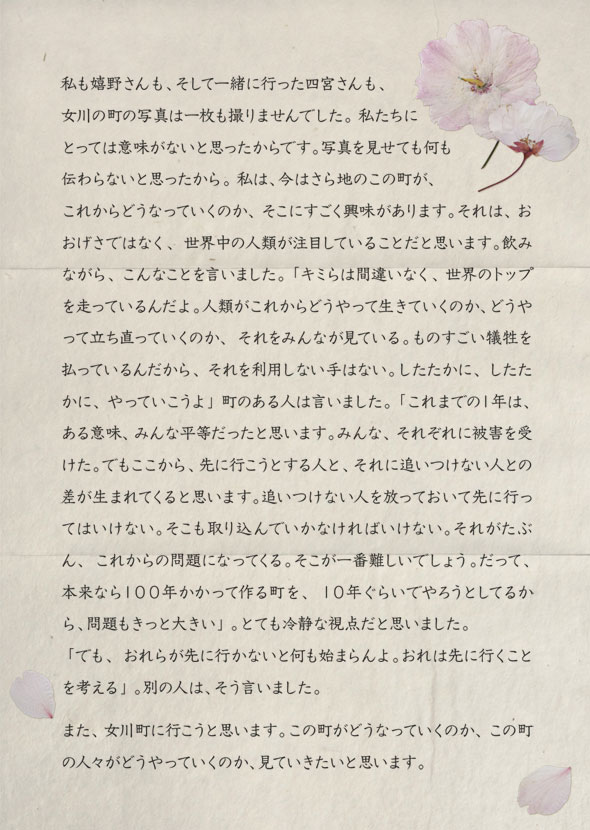 私も嬉野さんも、そして一緒に行った四宮さんも、
女川の町の写真は一枚も撮りませんでした。私たちに
とっては意味がないと思ったからです。写真を見せても何も
伝わらないと思ったから。私は、今はさら地のこの町が、
これからどうなっていくのか、そこにすごく興味があります。それは、お
おげさではなく、世界中の人類が注目していることだと思います。飲み
ながら、こんなことを言いました。「キミらは間違いなく、世界のトップ
を走っているんだよ。人類がこれからどうやって生きていくのか、どうや
って立ち直っていくのか、それをみんなが見ている。ものすごい犠牲を
払っているんだから、それを利用しない手はない。したたかに、したた
かに、やっていこうよ」町のある人は言いました。「これまでの1年は、
ある意味、みんな平等だったと思います。みんな、それぞれに被害を受
けた。でもここから、先に行こうとする人と、それに追いつけない人との
差が生まれてくると思います。追いつけない人を放っておいて先に行っ
てはいけない。そこも取り込んでいかなければいけない。それがたぶ
ん、これからの問題になってくる。そこが一番難しいでしょう。だって、
本来なら100年かかって作る町を、10年ぐらいでやろうとしてるか
ら、問題もきっと大きい」。とても冷静な視点だと思いました。
「でも、おれらが先に行かないと何も始まらんよ。おれは先に行くこと
を考える」。別の人は、そう言いました。
また、女川町に行こうと思います。この町がどうなっていくのか、この町
の人々がどうやっていくのか、見ていきたいと思います。